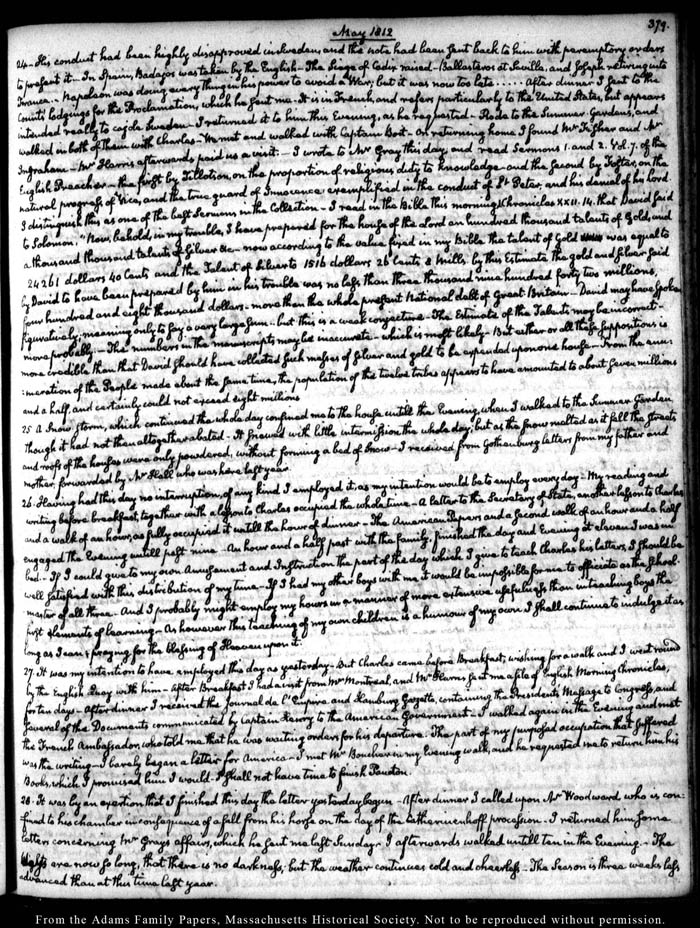 May 1812
379.
24 - His conduct had been highly disapproved in Sweden, and the note had been sent back to him with peremptory orders
to present it - In Spain, Badajos was taken by the English - The Siege of Cadiz raised - Ballasteros at Seville and Joseph retiring into
France - Napoleon was doing every thing in his power to avoid a War, but it was now too late ..... After dinner I sent to the
Count's lodgings for the Proclamation, which he sent me - It is in French, and refers particularly to the United States, but appears
intended really to cajole Sweden - I returned it to him this Evening, as he requested - Rode to the Summer Gardens, and
walked in both of them with Charles - We met and walked with Captain Bort - On returning home I found Mr Fisher and Mr
Ingraham - Mr Harris afterwards paid us a visit - I wrote to Mr Gray this day, and read Sermons 1. and 2. Vol. 7. of the
English Preacher - the first by Tillotson, on the proportion of religious duty to knowledge - and the Second by Foster, on the
natural progress of Vice, and the true guard of Innocence exemplified in the conduct of St Peter, and his denial of his lord
I distinguish this as one of the best Sermons in the Collection - I read in the Bible this morning 1 Chronicles XXII. 14. that David said
to Solomon, "Now, behold, in my trouble, I have prepared for the house of the Lord an hundred thousand talents of Gold, and
a thousand thousand talents of Silver &c - now according to the value fixed in my Bible the talent of Gold was equal to
24261 dollars 40 Cents and the Talent of Silver to 1516 dollars 26 Cents 8 Mills, by this Estimate the gold and Silver said
by David to have been prepared by him in his trouble was no less than three thousand nine hundred forty two millions,
four hundred and eight thousand dollars - more than the whole present National debt of Great Britain - David may have spoken
figuratively, meaning only to say a very large sum - but this is a weak conjecture - The Estimate of the Talents may be incorrect -
more probably - The numbers in the manuscripts may be inaccurate - which is most likely - But either or all these suppositions is
more credible than that David should have collected such masses of Silver and gold to be expended upon one house - From the enu-
:meration of the People made about the same time, the population of the twelve tribes appears to have amounted to about seven millions
and a half, and certainly could not exceed eight millions
25. A Snow storm, which continued the whole day confined me to the house untill the Evening, when I walked to the Summer Garden
though it had not then altogether abated - It snowed with little intermission the whole day; but as the Snow melted as it fell the streets
and roofs of the houses were only powdered, without forming a bed of Snow - I received from Gothenburg letters from my father and
mother, forwarded by Mr Hall who was here last year
26. Having had this day no interruption, of any kind I employed it, as my intention would be to employ every day - My reading and
writing before breakfast, together with a lesson to Charles occupied the whole time - A letter to the Secretary of State, another lesson to Charles
and a walk of an hour, as fully occupied it untill the hour of dinner - The American Papers and a Second walk of an hour and a half
engaged the Evening untill past nine - An hour and a half past with the family, finished the day and Evening at eleven I was in
bed - If I could give to my own Amusement and Instruction the part of the day which I give to teach Charles his letters, I should be
well satisfied with this distribution of my time - If I had my other boys with me it would be impossible for me to officiate as the School-
master of all three - And I probably might employ my hours in a manner of more extensive usefulness than in teaching boys the
first elements of learning - As however this teaching of my own children is a humour of my own I shall continue to indulge it as
long as I can; praying for the blessing of Heaven upon it
27. It was my intention to have employed this day as yesterday - But Charles came before Breakfast, wishing for a walk and I went round
by the English Quay with him - After Breakfast I had a visit from Mr Montreal, and Mr Harris sent me a file of English Morning Chronicles,
for ten days - After dinner I received the Journal de l'Empire and Hamburg Gazette, containing the Presidents Message to Congress, and
several of the Documents communicated by Captain Henry to the American Government - I walked again in the Evening and met
the French Ambassador, who told me that he was waiting orders for his departure. The part of my purposed occupation that suffered
was the writing - I barely began a letter for America - I met Mr in my Evening walk, and he requested me to return him his
Books, which I promised him I would. I shall not have time to finish
28. It was by an exertion that I finished this day the letter yesterday begun - After dinner I called upon Mr Woodward who is con-
fined to his chamber in consequence of a fall from his horse on the day of the Catherinenhoff procession. I returned him some
letter concerning Mr Grays affairs, which he sent me last Sunday. I afterwards walked untill ten in the Evening. The
days are now so long, that there is no darkness, but the weather continues cold and cheerless - The Season is three weeks less
advanced than at this time last year.
From the Adams Family Papers, Massachusetts Historical Society. Not to be reproduced without permission.